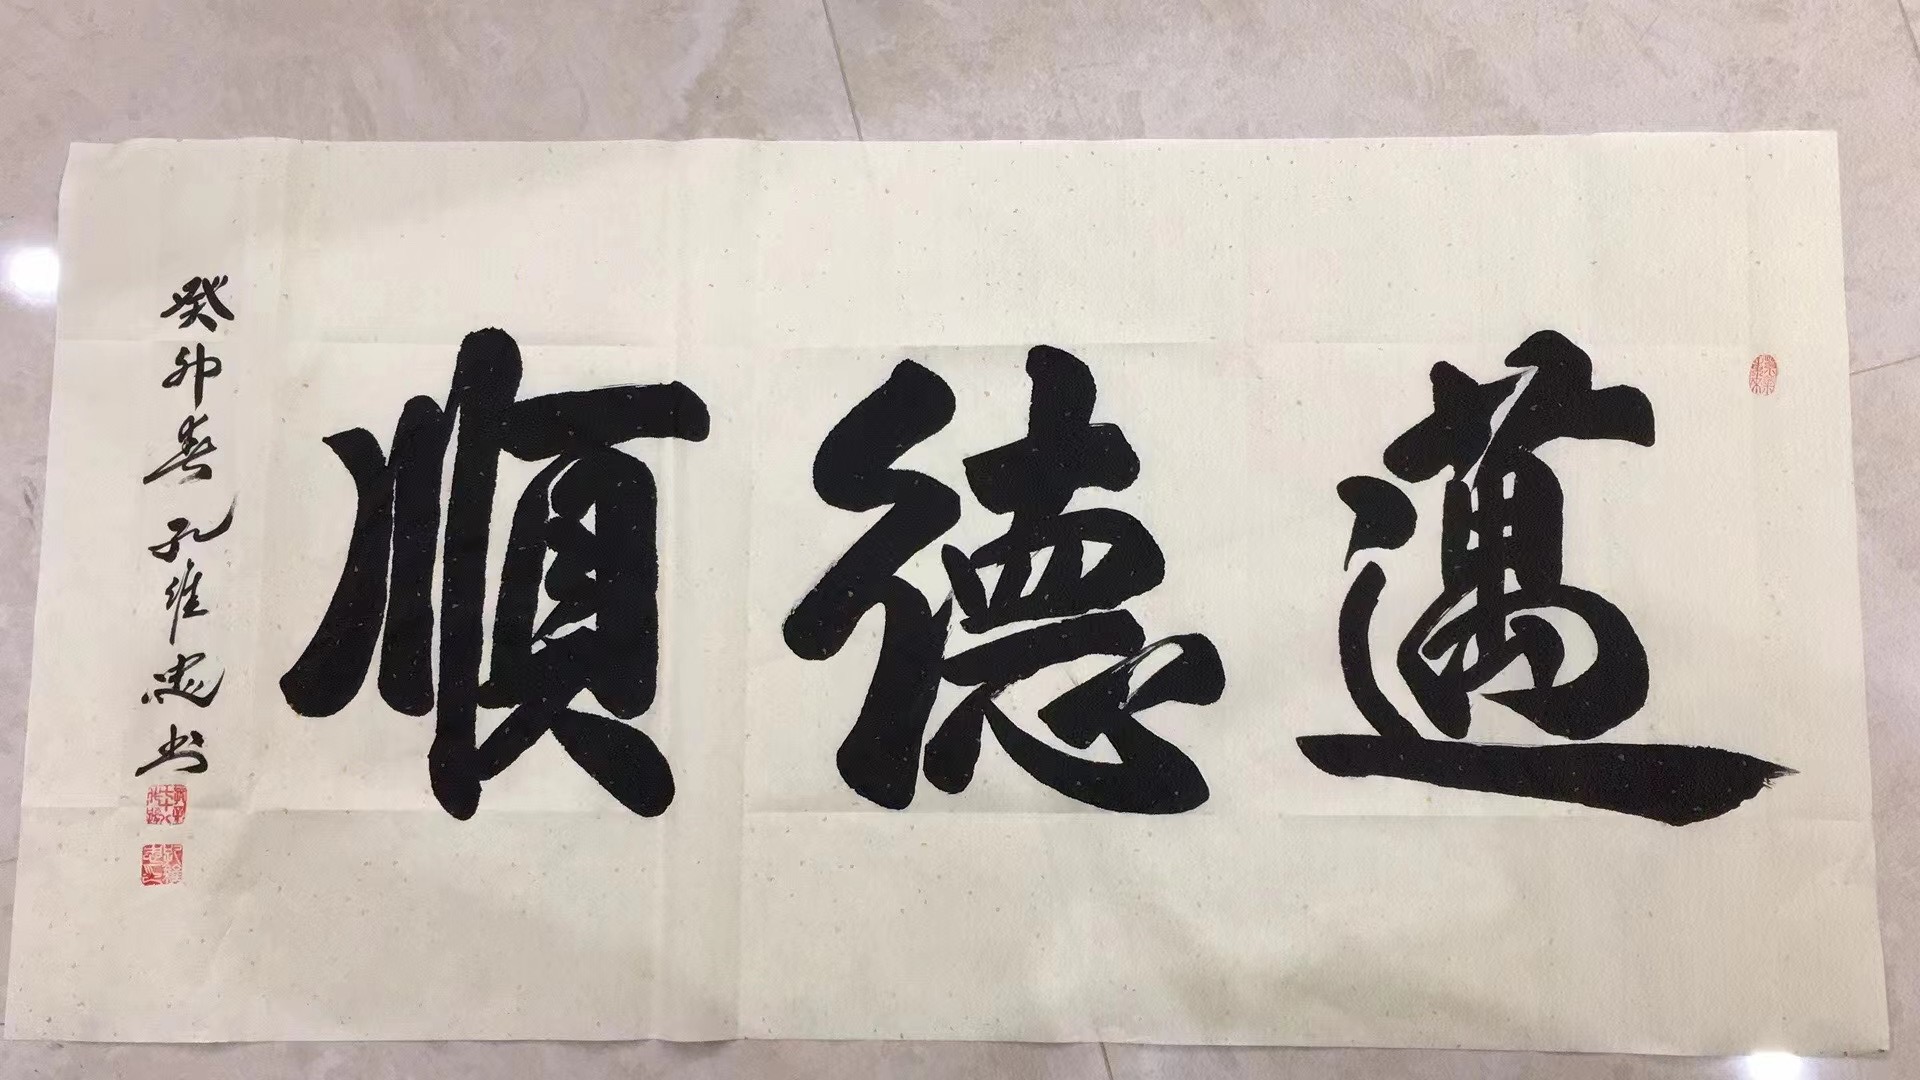 邁德順
癸卯春孔維忠书